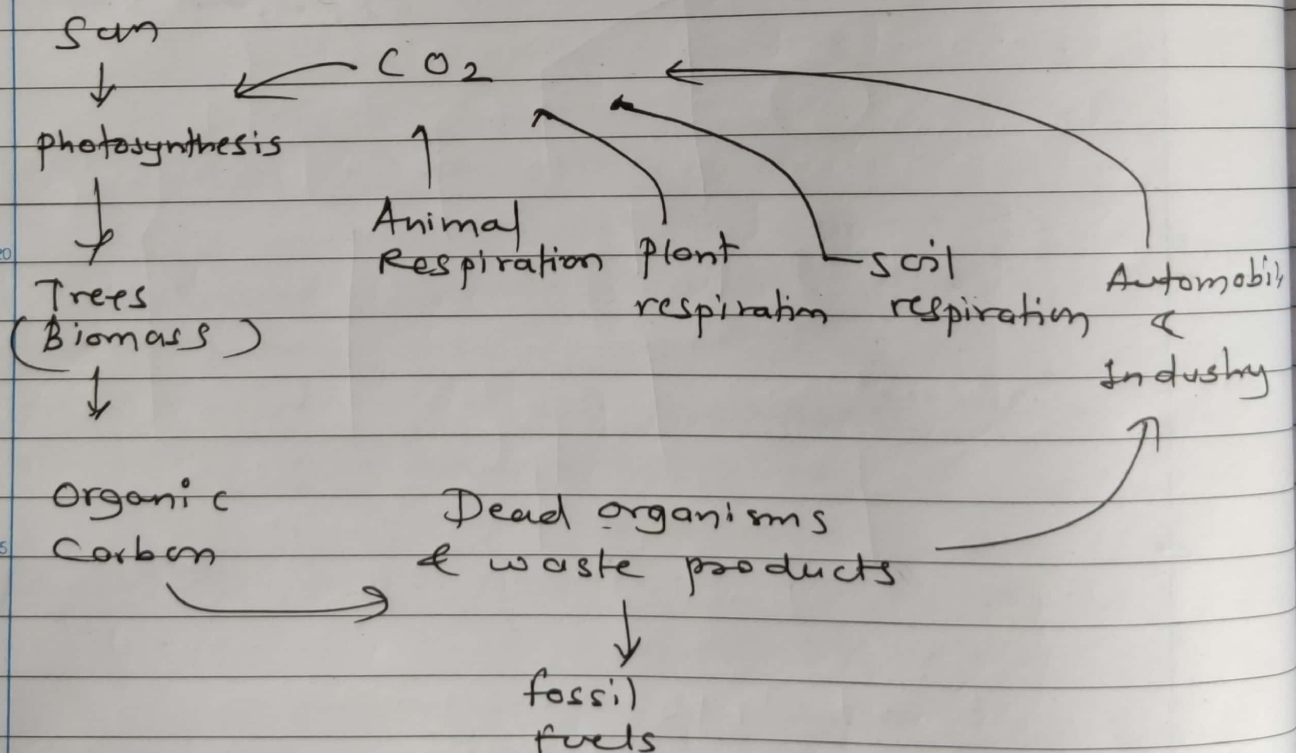 Sun
CO2
photosynthesis
Animal
Respiration
Plant
respiration
soil
respiration
Automobil
&
Industry
Trees
(Biomass)
Organic
Carbon
Dead organisms
& waste products
fossil
fuels